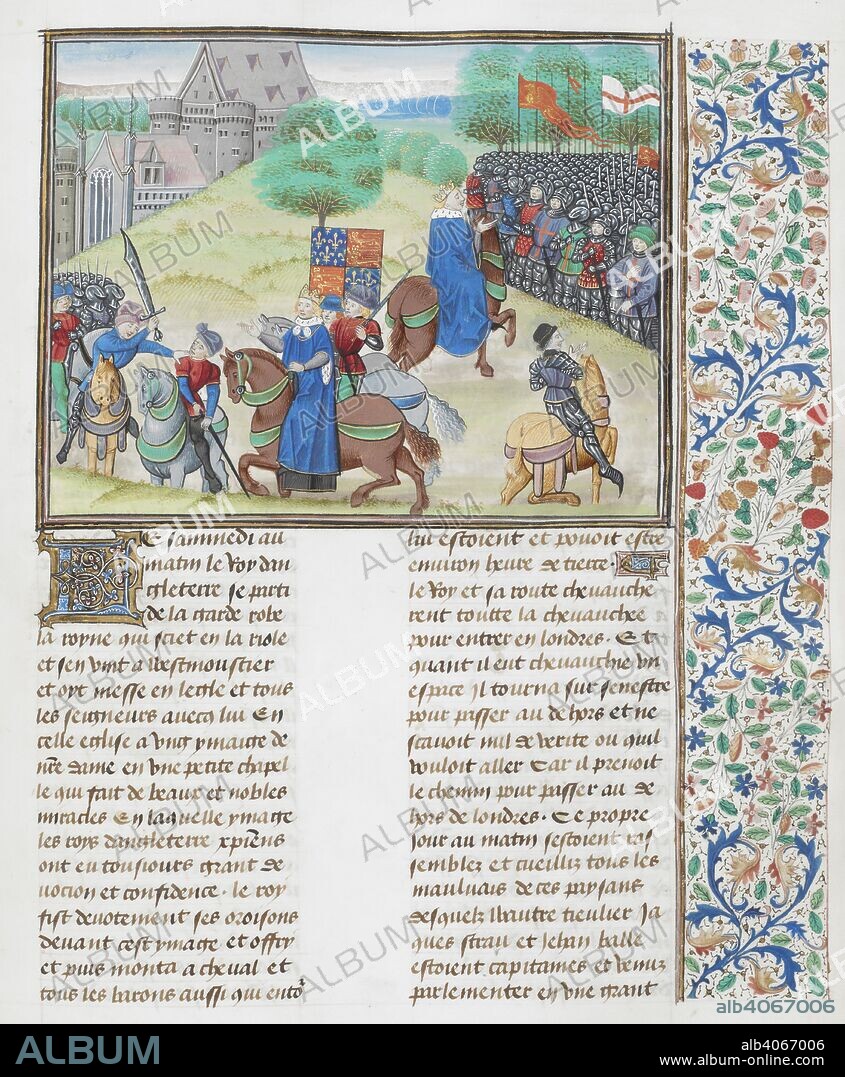 Le sammedi au
matin le Roy dan
gleterre se parti
de la garde robe
la royne qui sciet en la riole
et sen vint a westmoustier
et oyt messe en leglē et tous
les seigneurs avecq lui En
celle eglise a ung ymaige de
nr̄e dame en une petite chapel
le qui fait de beaux et nobles
miracles En laquelle ymage
les roys dangleterre xp̄iens
ont eu tousiours grant de
uocion et confidence. le roy
fist devotement ses oroisons
devant cest ymage et offry
et puis monta a cheval et
tous les barons aussi qui ento
lui estoient et pouoit estre
environ heure de tierce.
le Roy et sa route chevauche
rent toutte la chevauchee
pour entrer en londres. Et
quant il eut chevauchie un
espace Il tourna sur senestre
pour passer au dehors et ne
scavoit nul de verite ou quil
vouloit aller Car il prenoit
le chemin pour passer au de
hors de londres. Ce propre
Jour au matin sestoient ras
semblez et cueilliz tous les
mauluais de ces paysans
desquelz wautre tieulier Ja
ques strau et Jehan balle
estoient capitaines et venuz
parlementer en une grant
ALBUM
alb4067006
ALBUM
alb4067006
www.album-online.com